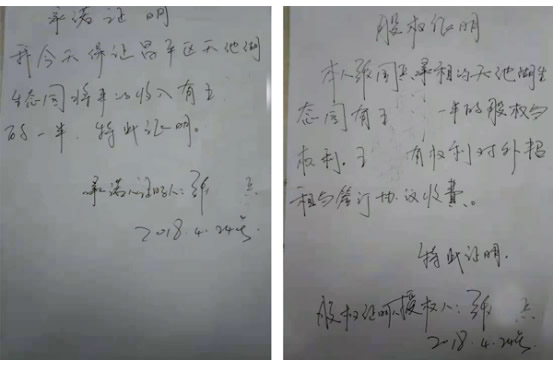 承诺证明
我今天保证昌平区天池湖
生态园将来的收入有王
的一半,特此证明。
承诺证明人:张
2018.4.24号
股权证明
本人张国 承租的天池湖生
态园有王 一半的股权与
权利.王 有权利对外招
租与签订协议收费。
特此证明.
股权证明授权人:张
2018.4.24号